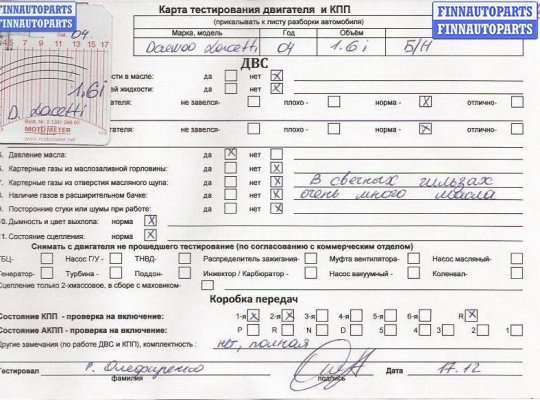 FINNAUTOPARTS
FINNAUTOPARTS
FINNAUTOPARTS
FINNAUTOPARTS
Карта тестирования двигателя и КПП
(прикалывать к листу разборки автомобиля)
Марка, модель Год Объём
Daewoo Lacetti 04 1.6 i Б/Н
04
11 13 15 17
1.6i
D. Lacetti
MOTOMETER
ДВС
сти в масле: да нет X
й жидкости: да нет X
гателя: не завелся- плохо - норма - X отлично-
гателя: не завелся- плохо - норма - X отлично-
5. Давление масла: да X нет
6. Картерные газы из маслозаливной горловины: да нет X
7. Картерные газы из отверстия масляного щупа: да нет X
8. Наличие газов в расширительном бачке: да нет X
9. Посторонние стуки или шумы при работе: да нет X
В свечных гильзах
очень много масла
10. Дымность и цвет выхлопа: норма X
11. Состояние сцепления: норма X
Снимать с двигателя не прошедшего тестирование (по согласованию с коммерческим отделом)
ГБЦ- Насос Г/У - ТНВД- Распределитель зажигания- Муфта вентилятора- Насос масляный-
Генератор- Турбина - Поддон- Инжектор / Карбюратор - Насос вакуумный - Коленвал-
Сцепление только 2-хмассовое, в сборе с маховиком-
Коробка передач
Состояние КПП - проверка на включение: 1-я X 2-я X 3-я 4-я 5-я 6-я R X
Состояние АКПП - проверка на включение: P R N D 5 4 3 2 1
Другие замечания (по работе ДВС и КПП), комплектность : нет, полная
Тестировал Р. Олефиренко Дата 17.12
фамилия подпись